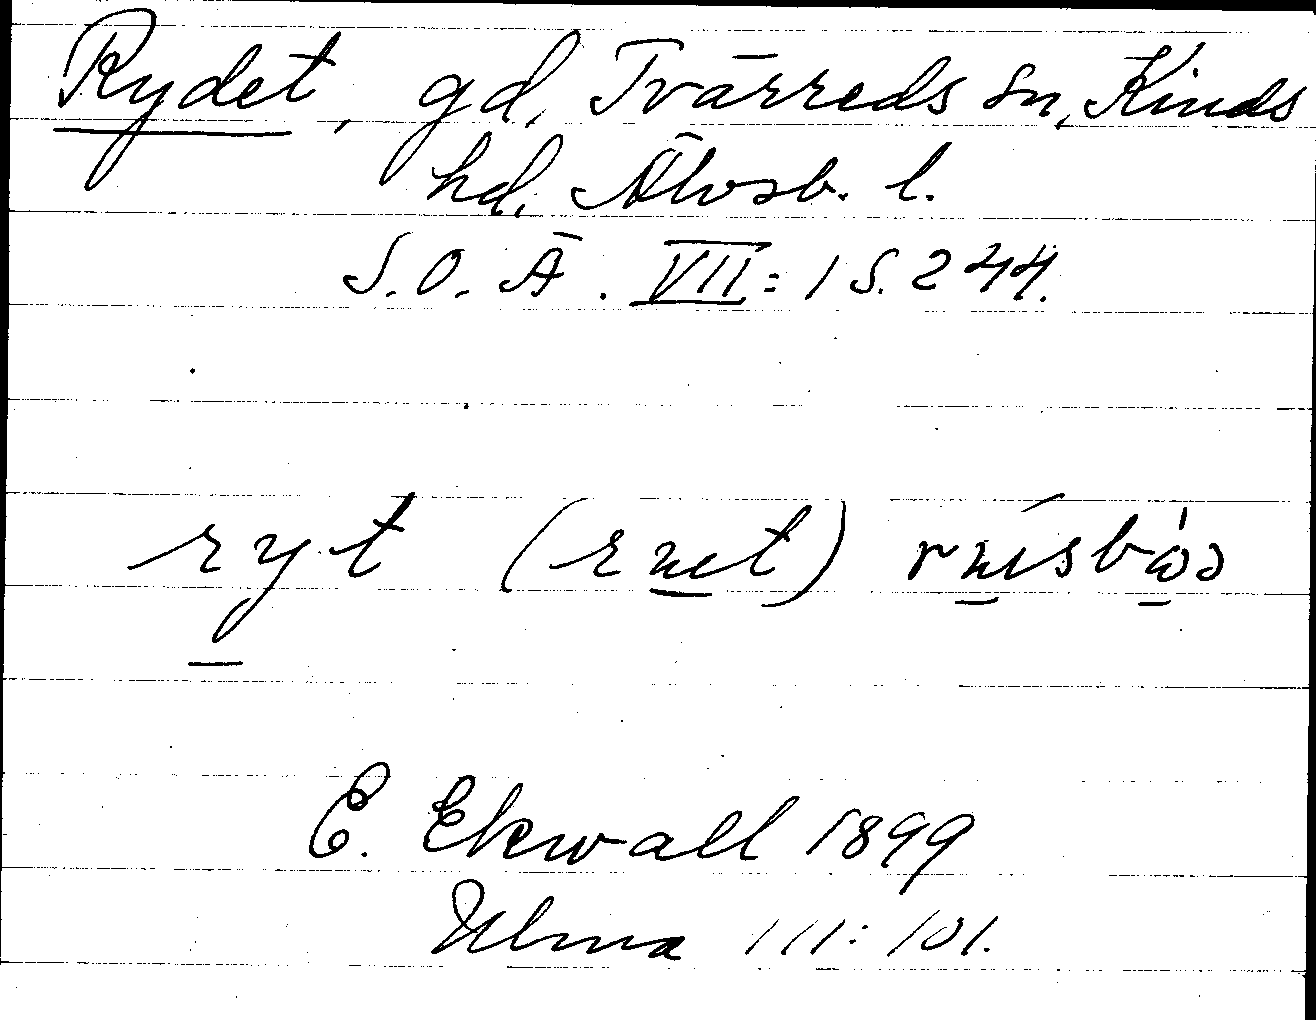 Rydet, gd, Tvärreds sn, Kinds
hd, Älvsb. l.
S.O.Ä. VII:1 S.244.
ryt
E. Ekwall 1899
Ulma 111:101.